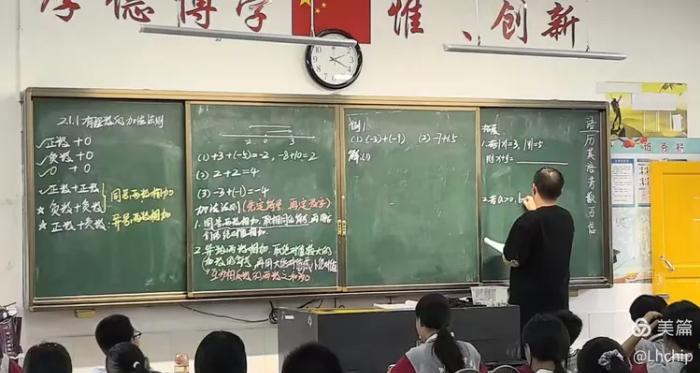 厚德博学
惟、创新
2.1.1 有理数的加法法则
正数+0
负数+0
0+0
正数+正数
负数+负数
正数+负数
同号两数相加
异号两数相加
-2 0 3
(1)+3+(-5)=-2, -8+10=2
(2) 2+2=4
(3) -3+(-1)=-4
加法法则(先定符号,再定大小)
1.同号两数相加,取相同的符号,
2.异号两数相加,取绝对值较大的
互为相反数的两数之和为0
例1
(1) (-3)+(-9) (2) -7+15
解:(1)
拓展
1.若|x|=3, |y|=5
则x+y=
2.若a>0, b
语 历 英 语 考 数 方 位
美篇
@Lhchip